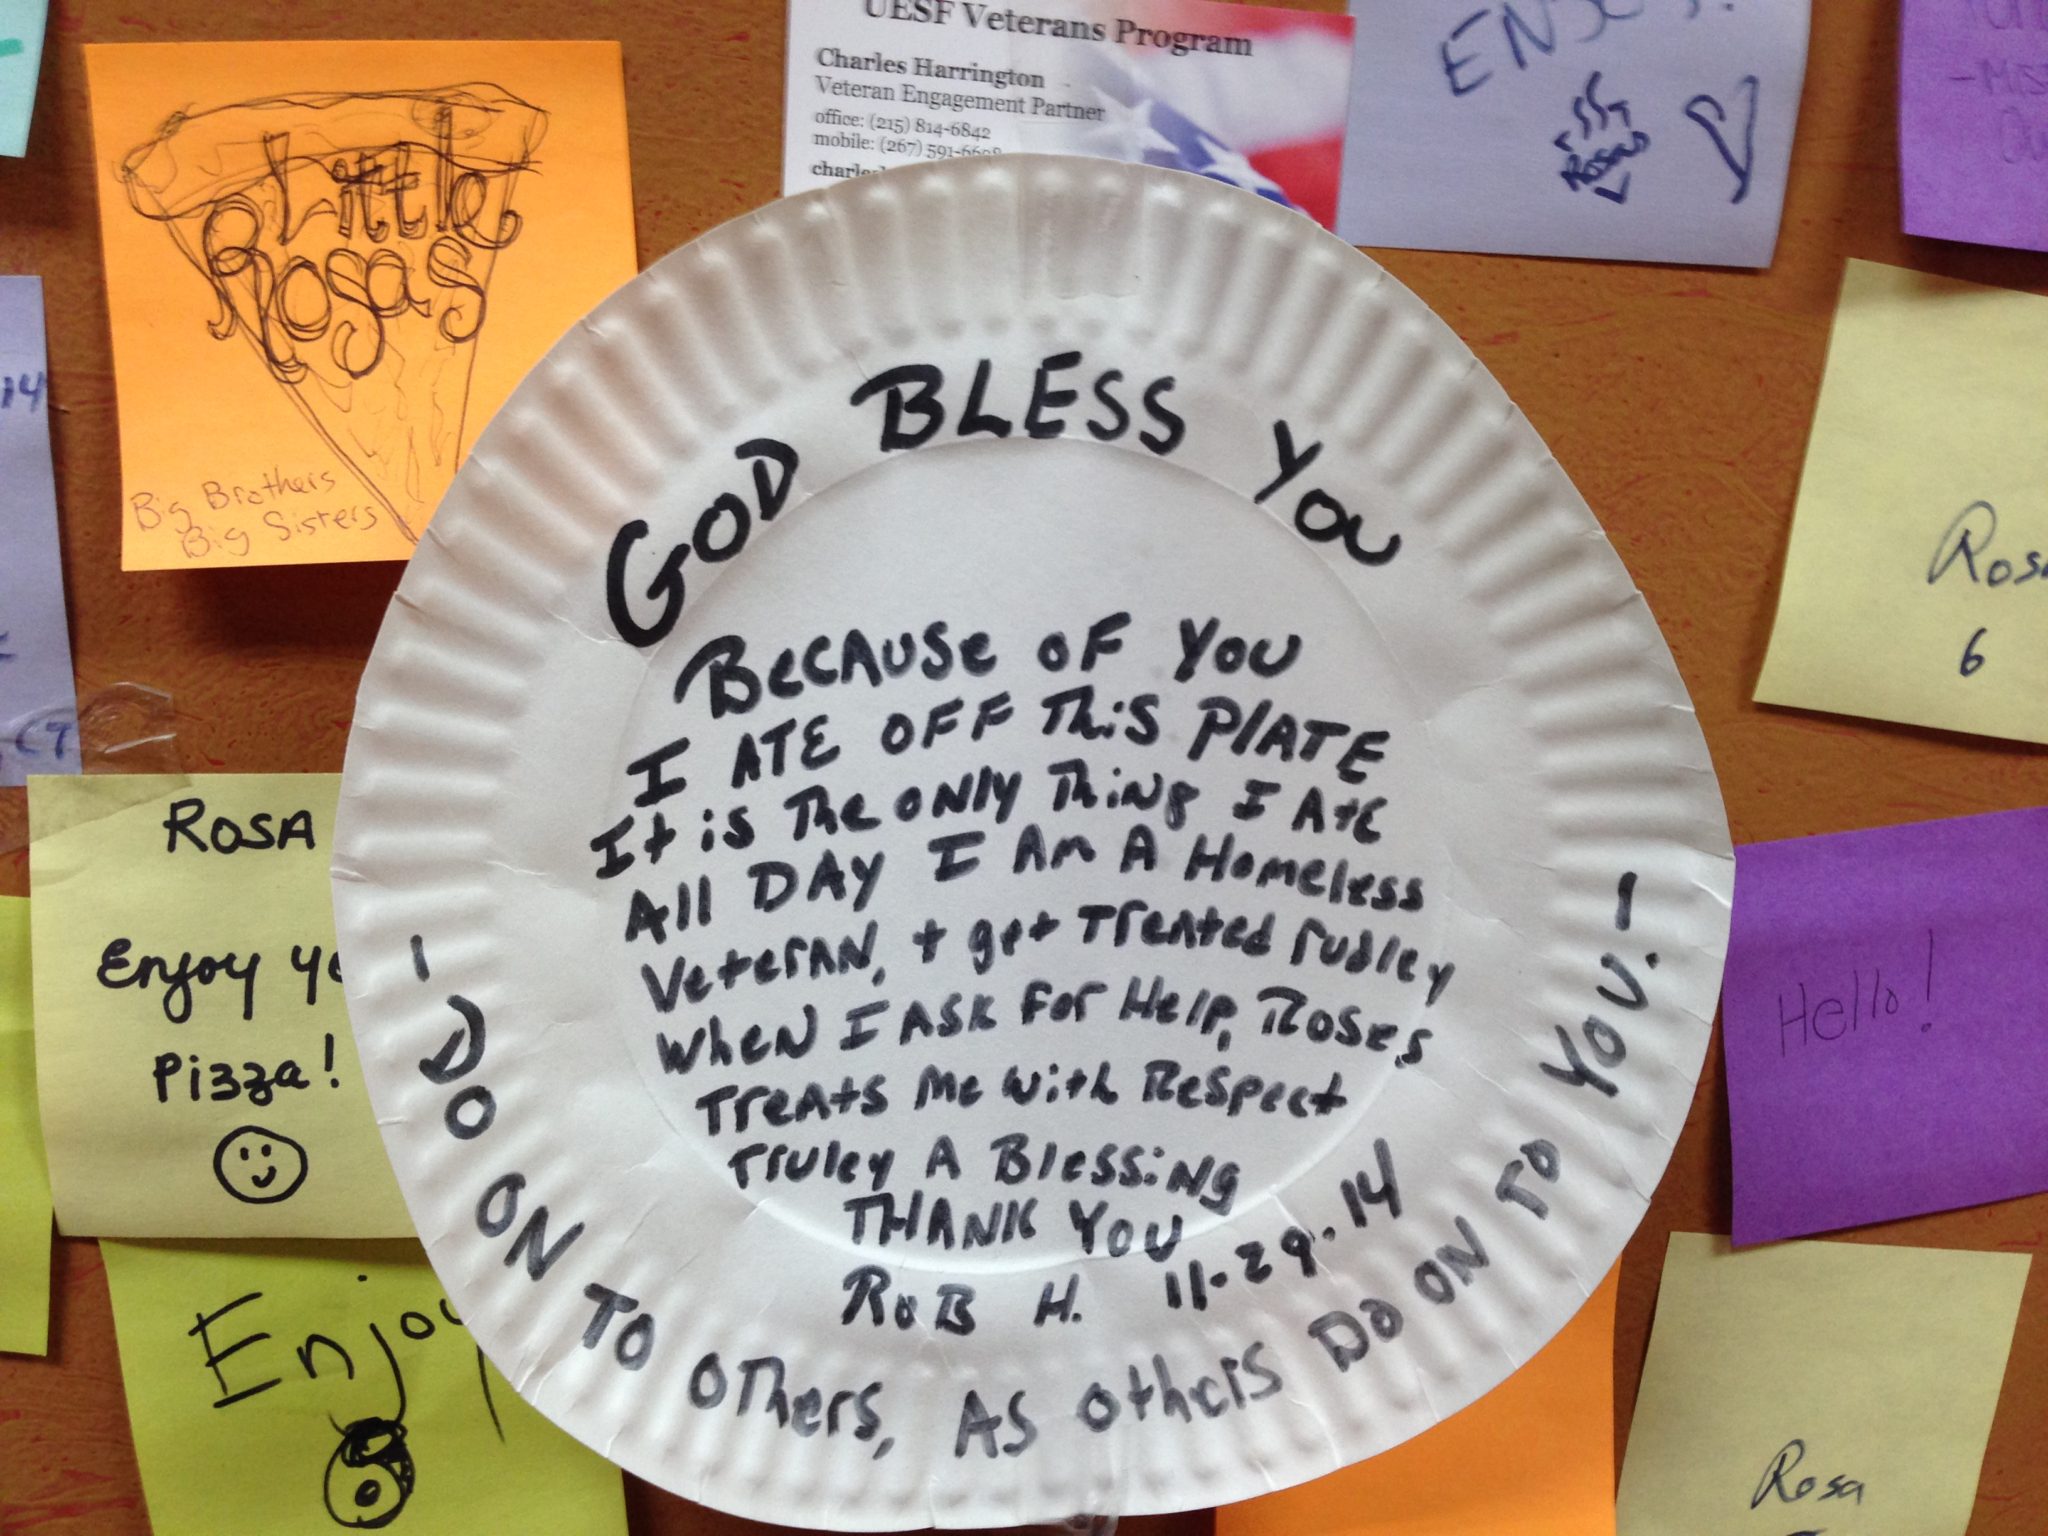 Little
Rosas
Big Brothers
Big Sisters
UESF Veterans Program
Charles Harrington
Veteran Engagement Partner
office: (215) 814-6842
mobile: (267) 591-66
ENJOY!
ROSAS
GOD BLESS YOU
BECAUSE OF YOU
I ATE OFF THIS PLATE
It is The ONLY Thing I Ate
All DAY I Am A Homeless
VeterAN, + get Treated rudley
When I ASK For Help, Roses
Treats Me with Respect
Truley A Blessing
THANK YOU
RoB H. 11-29-14
- DO ON TO OThers, As Others DO ON TO YOU. -
14
ROSA
Enjoy
Pizza!
Enjoy
Rosa
6
Hello!
Rosa